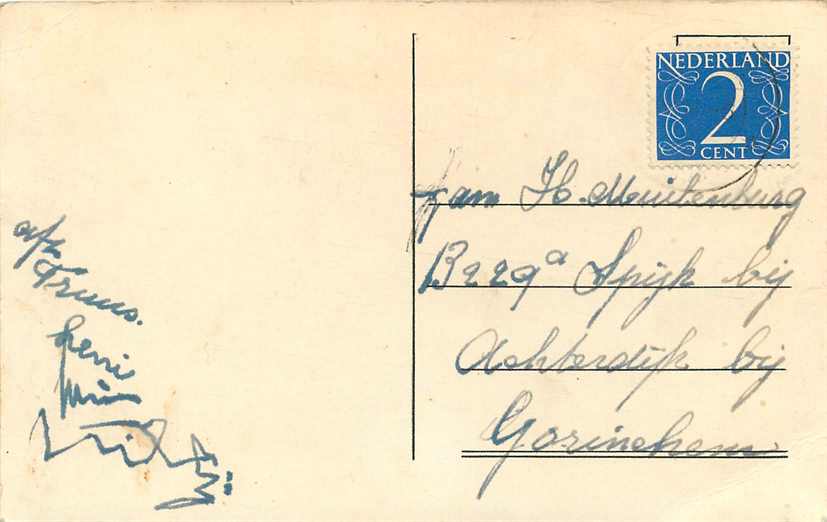 NEDERLAND
2
CENT
Fam H. Muitenburg
B229a Spijk bij
Achterdijk bij
Gorinchem
afz
Truus.
henri
Wim